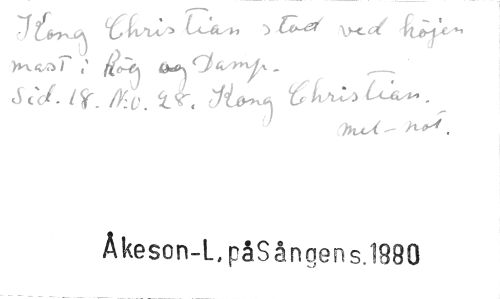 Kong Christian stod ved höjen
mast i Rög og Damp.
Sid. 18. N:o. 28. Kong Christian.
mel-not.
Åkeson-L, påSångens.1880